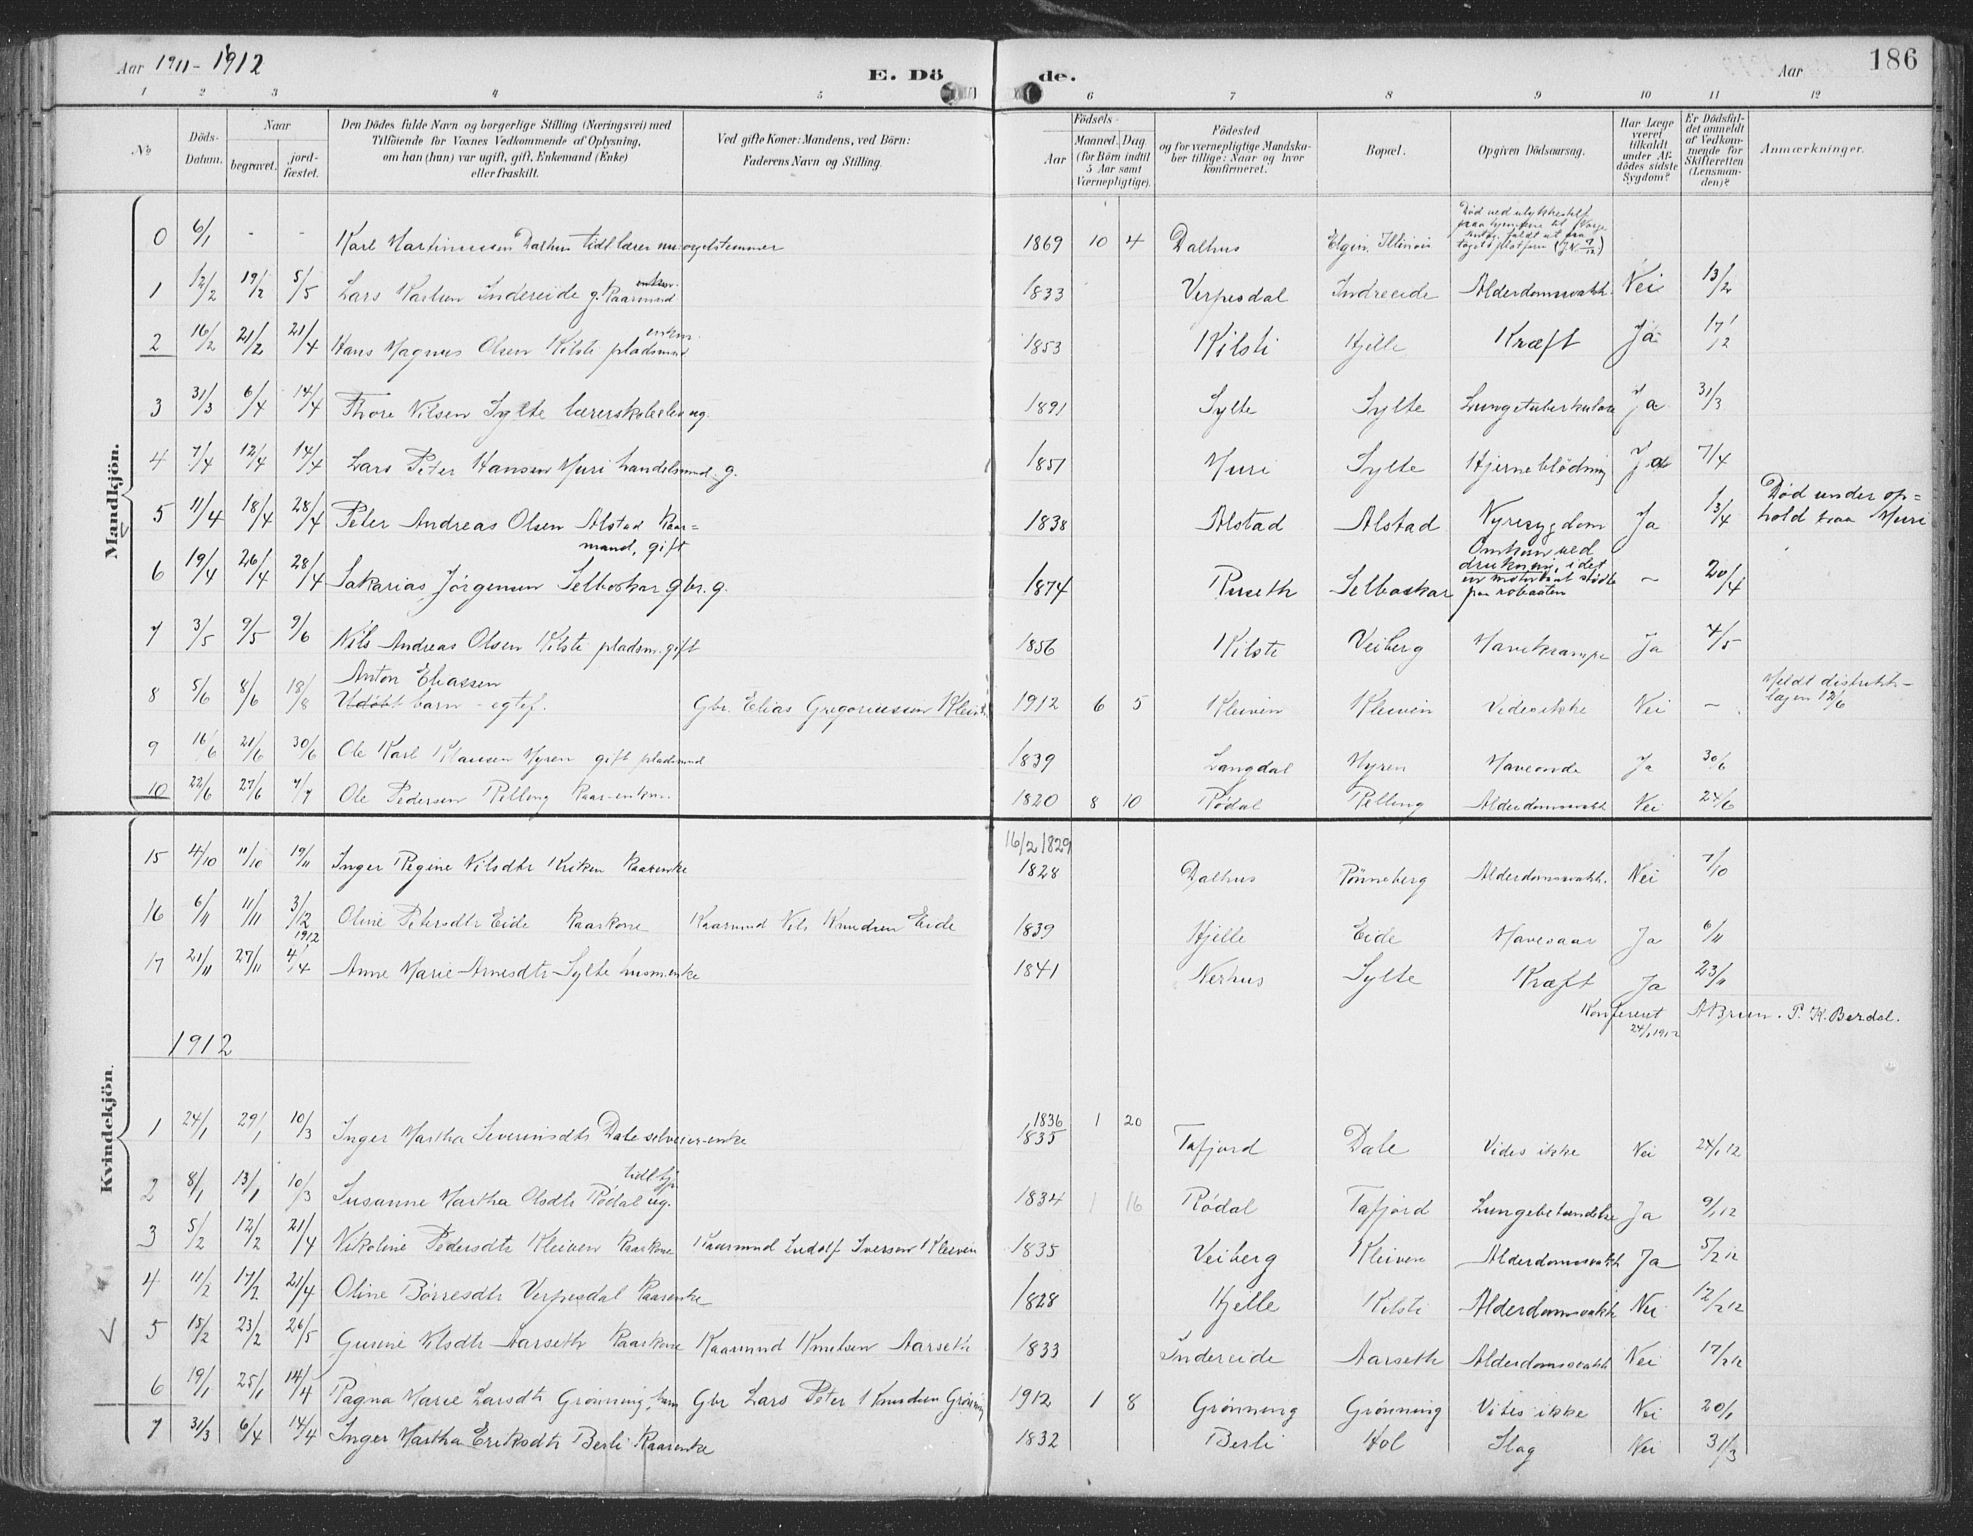 Aar 1911-1912
E. Dö de.
Aar
186
1 2 3 4 5 6 7 8 9 10 11 12
No
Döds-Datum.
Naar
begravet.
jord-fæstet.
Den Dödes fulde Navn og borgerlige Stilling (Næringsvei) med
Tilföiende for Voxnes Vedkommende af Oplysning,
om han (hun) var ugift, gift, Enkemand (Enke)
eller fraskilt.
Ved gifte Koner: Mandens, ved Börn:
Faderens Navn og Stilling.
Födsels-
Aar
Maaned. Dag
(for Börn indtil
5 Aar samt
Værnepligtige).
Födested
og for værnepligtige Mandska-
ber tillige: Naar og hvor
konfirmeret.
Bopæl.
Opgiven Dödsaarsag.
Har Læge
været
tilkaldt
under Af-
dödes sidste
Sygdom?
Er Dödsfal-
det anmeldt
af Vedkom-
mende for
Skifteretten
(Lensman-
den)?
Anmærkninger.
Mandkjön.
0 6/1 - - Karl Martinussen Dalhus tidl lærer nu orgelstemmer 1869 10 4 Dalhus Elgin, Illinois Död ved ulykkestilf
1 12/2 19/2 5/5 Lars Karlsen Indereide g. kaarmand 1833 Verpesdal Indreeide Alderdomssvakh. Nei 13/2
2 16/2 21/2 21/4 Hans Magnus Olsen Kilsti pladsmnd enkm. 1853 Kilsti Hjelle Kræft Ja 17/2
3 31/3 6/4 14/4 Thore Nilsen Sylte lærerskoleelev ug. 1891 Sylte Sylte Lungetuberkulose Ja 31/3
4 7/4 12/4 14/4 Lars Peter Hansen Muri handelsmnd. g. 1851 Muri Sylte Hjerneblödning Ja 7/4
5 11/4 18/4 28/4 Peter Andreas Olsen Alstad Kaar=
mand, gift 1838 Alstad Alstad Nyresygdom Ja 13/4 Död under op=
hold paa Muri
6 19/4 26/4 28/4 Sakarias Jörgensen Selboskar gbr. g. 1874 Ruseth Selboskar Omkom ved
drukning, i det
en motorbaat stödte
paa robaaten - 20/4
7 3/5 9/5 9/6 Nils Andreas Olsen Kilsti pladsm. gift 1856 Kilsti Veiberg Mavekrampe Ja 4/5
8 5/6 8/6 18/8 Anton Eliassen
Udöbt barn - egtef. Gbr. Elias Gregoriussen Kleiven 1912 6 5 Kleiven Kleiven Vides ikke Nei - Meldt distrikts-
lægen 12/6
9 16/6 21/6 30/6 Ole Karl Klausen Myren gift pladsmnd 1839 Langdal Myren Maveonde Ja 30/6
10 22/6 27/6 7/7 Ole Pedersen Relling Kaar-enkm. 1820 8 10 Rödal Relling Alderdomssvakh Nei 24/6
Kvindekjön.
16/2 1829
15 4/10 11/10 19/11 Inger Regine Nilsdtr Kriken Kaarenke 1828 Dalhus Rönneberg Alderdomssvakh. Nei 7/10
16 6/11 11/11 3/12 Oline Petersdtr Eide Kaarkone Kaarmnd Nils Knudsen Eide 1839 Hjelle Eide Mavesaar Ja 6/11
1912
17 21/11 27/11 4/4 Anne Marie Arnesdtr Sylte husm.enke 1841 Nerhus Sylte Kræft Ja 23/11
Konfereret 24/1 1912 ABruun. P. K. Berdal.
1912
1 24/1 29/1 10/3 Inger Martha Severinsdtr Dale selveier-enke 1836 1835 1 20 Tafjord Dale Vides ikke Nei 24/1 12
2 8/1 13/1 10/3 Susanne Martha Olsdtr Rödal ug. tidl tj. 1834 1 16 Rödal Tafjord Lungebetændelse Ja 9/1 12
3 5/2 12/2 21/4 Nikoline Pedersdtr Kleiven Kaarkone Kaarmnd Ludolf Iversen Kleiven 1835 Veiberg Kleiven Alderdomssvakh Ja 5/2 12
4 11/2 17/2 21/4 Oline Börresdtr Verpesdal Kaarenke 1828 Hjelle Kilsti Alderdomssvakh Nei 12/2 12
5 15/2 23/2 26/5 Gurine Nilsdtr Aarseth Kaarkone Kaarmnd Knut Olsen Aarseth 1833 Indereide Aarseth Alderdomssvakh Nei 17/2 12
6 19/1 25/1 14/4 Ragna Marie Larsdtr Grönning, barn Gbr Lars Peter Knudsen Grönning 1912 1 8 Grönning Grönning Vites ikke Nei 20/1
7 31/3 6/4 14/4 Inger Martha Eriksdtr Berli Kaarenke 1832 Berli Hol Slag Nei 31/3